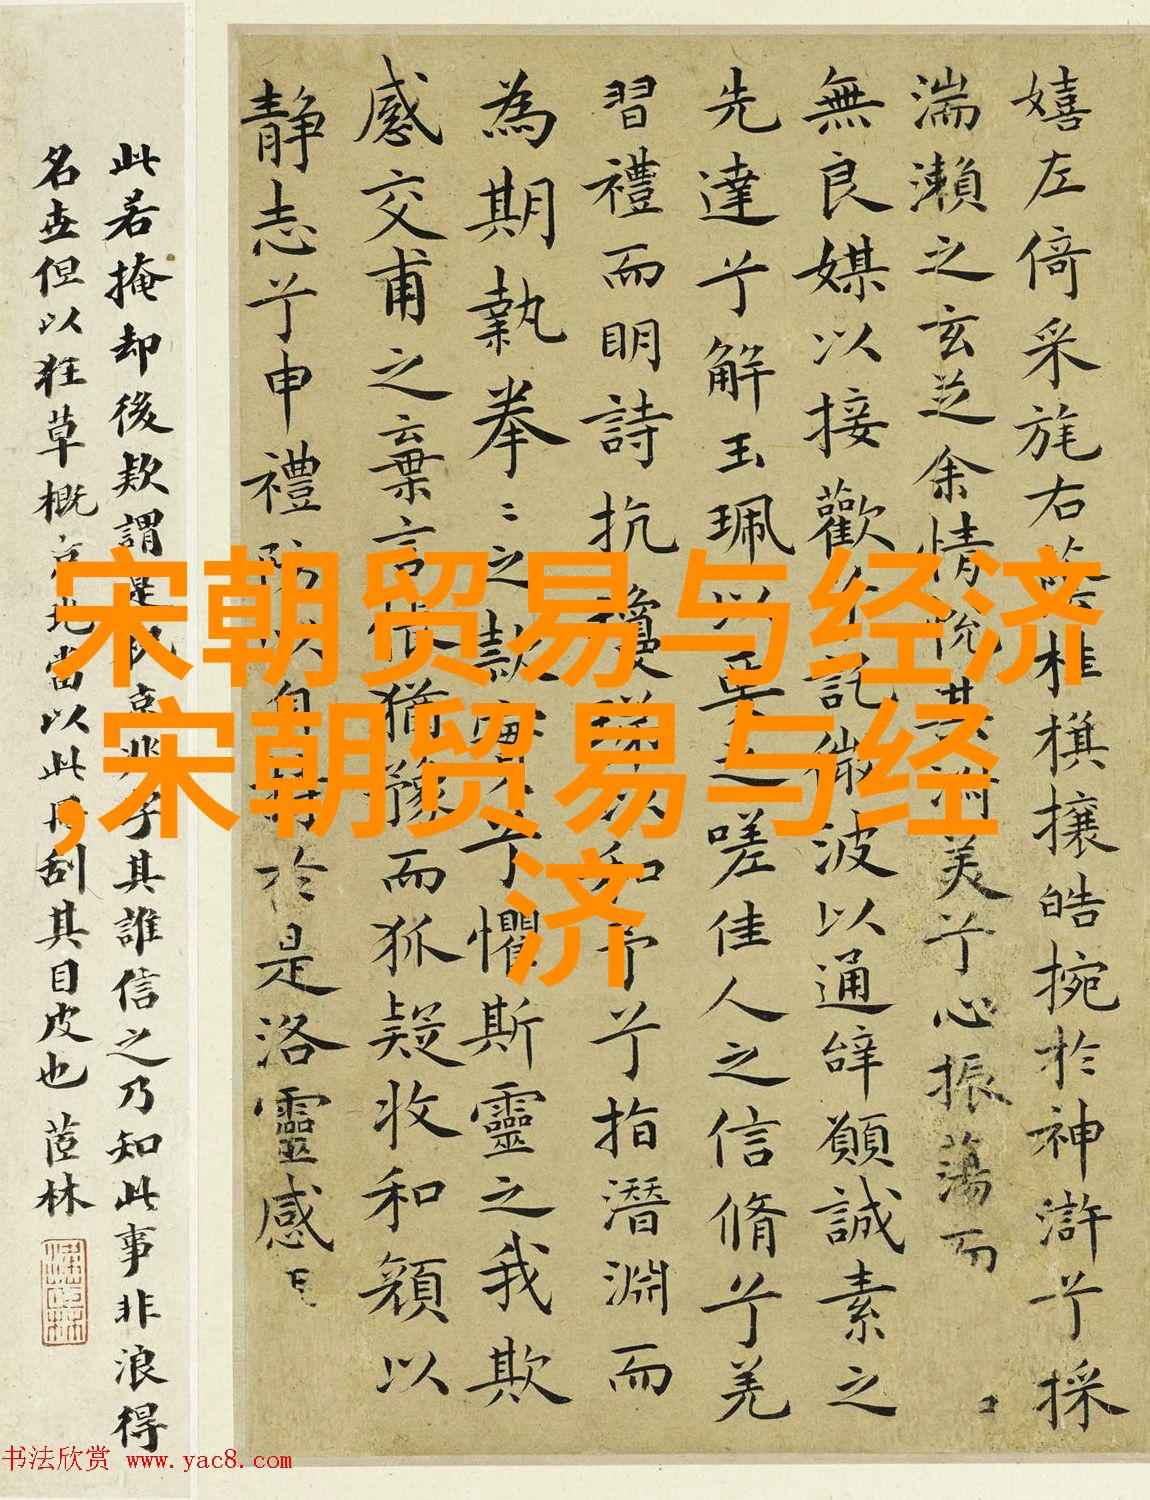 嬉左倚采旄右蔭桂棋攘皓捥於神滸兮採
湍瀨之玄芝余情悅其淑美兮心振蕩而
無良媒以接歡兮託微波以通辭願誠素之
先達兮解玉珮以要之嗟佳人之信脩兮羌
習禮而眀詩抗瓊珶以和予兮指潛淵而
為期執拳〻之款實兮懼斯靈之我欺
感交甫之棄言悵猶豫而狐疑收和顏以
静志兮申禮防以自持於是洛靈感
此若掩却後欵謂是執京兆字其誰信之乃知此事非浪得
名世但以狂草概當以此冊刮其目皮也 茝林
宋朝贸易与经济
,宋朝贸易与经
济
书法欣赏 www.yac8.com